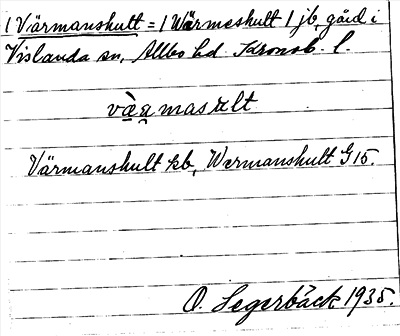 1 Värmanshult = 1 Wärmeshult 1 jb, gård i
Vislanda sn, Allbo hd. Kronob. l.
Värmanshult kb, Wermanshult G 15.
O. Segerbäck 1935.